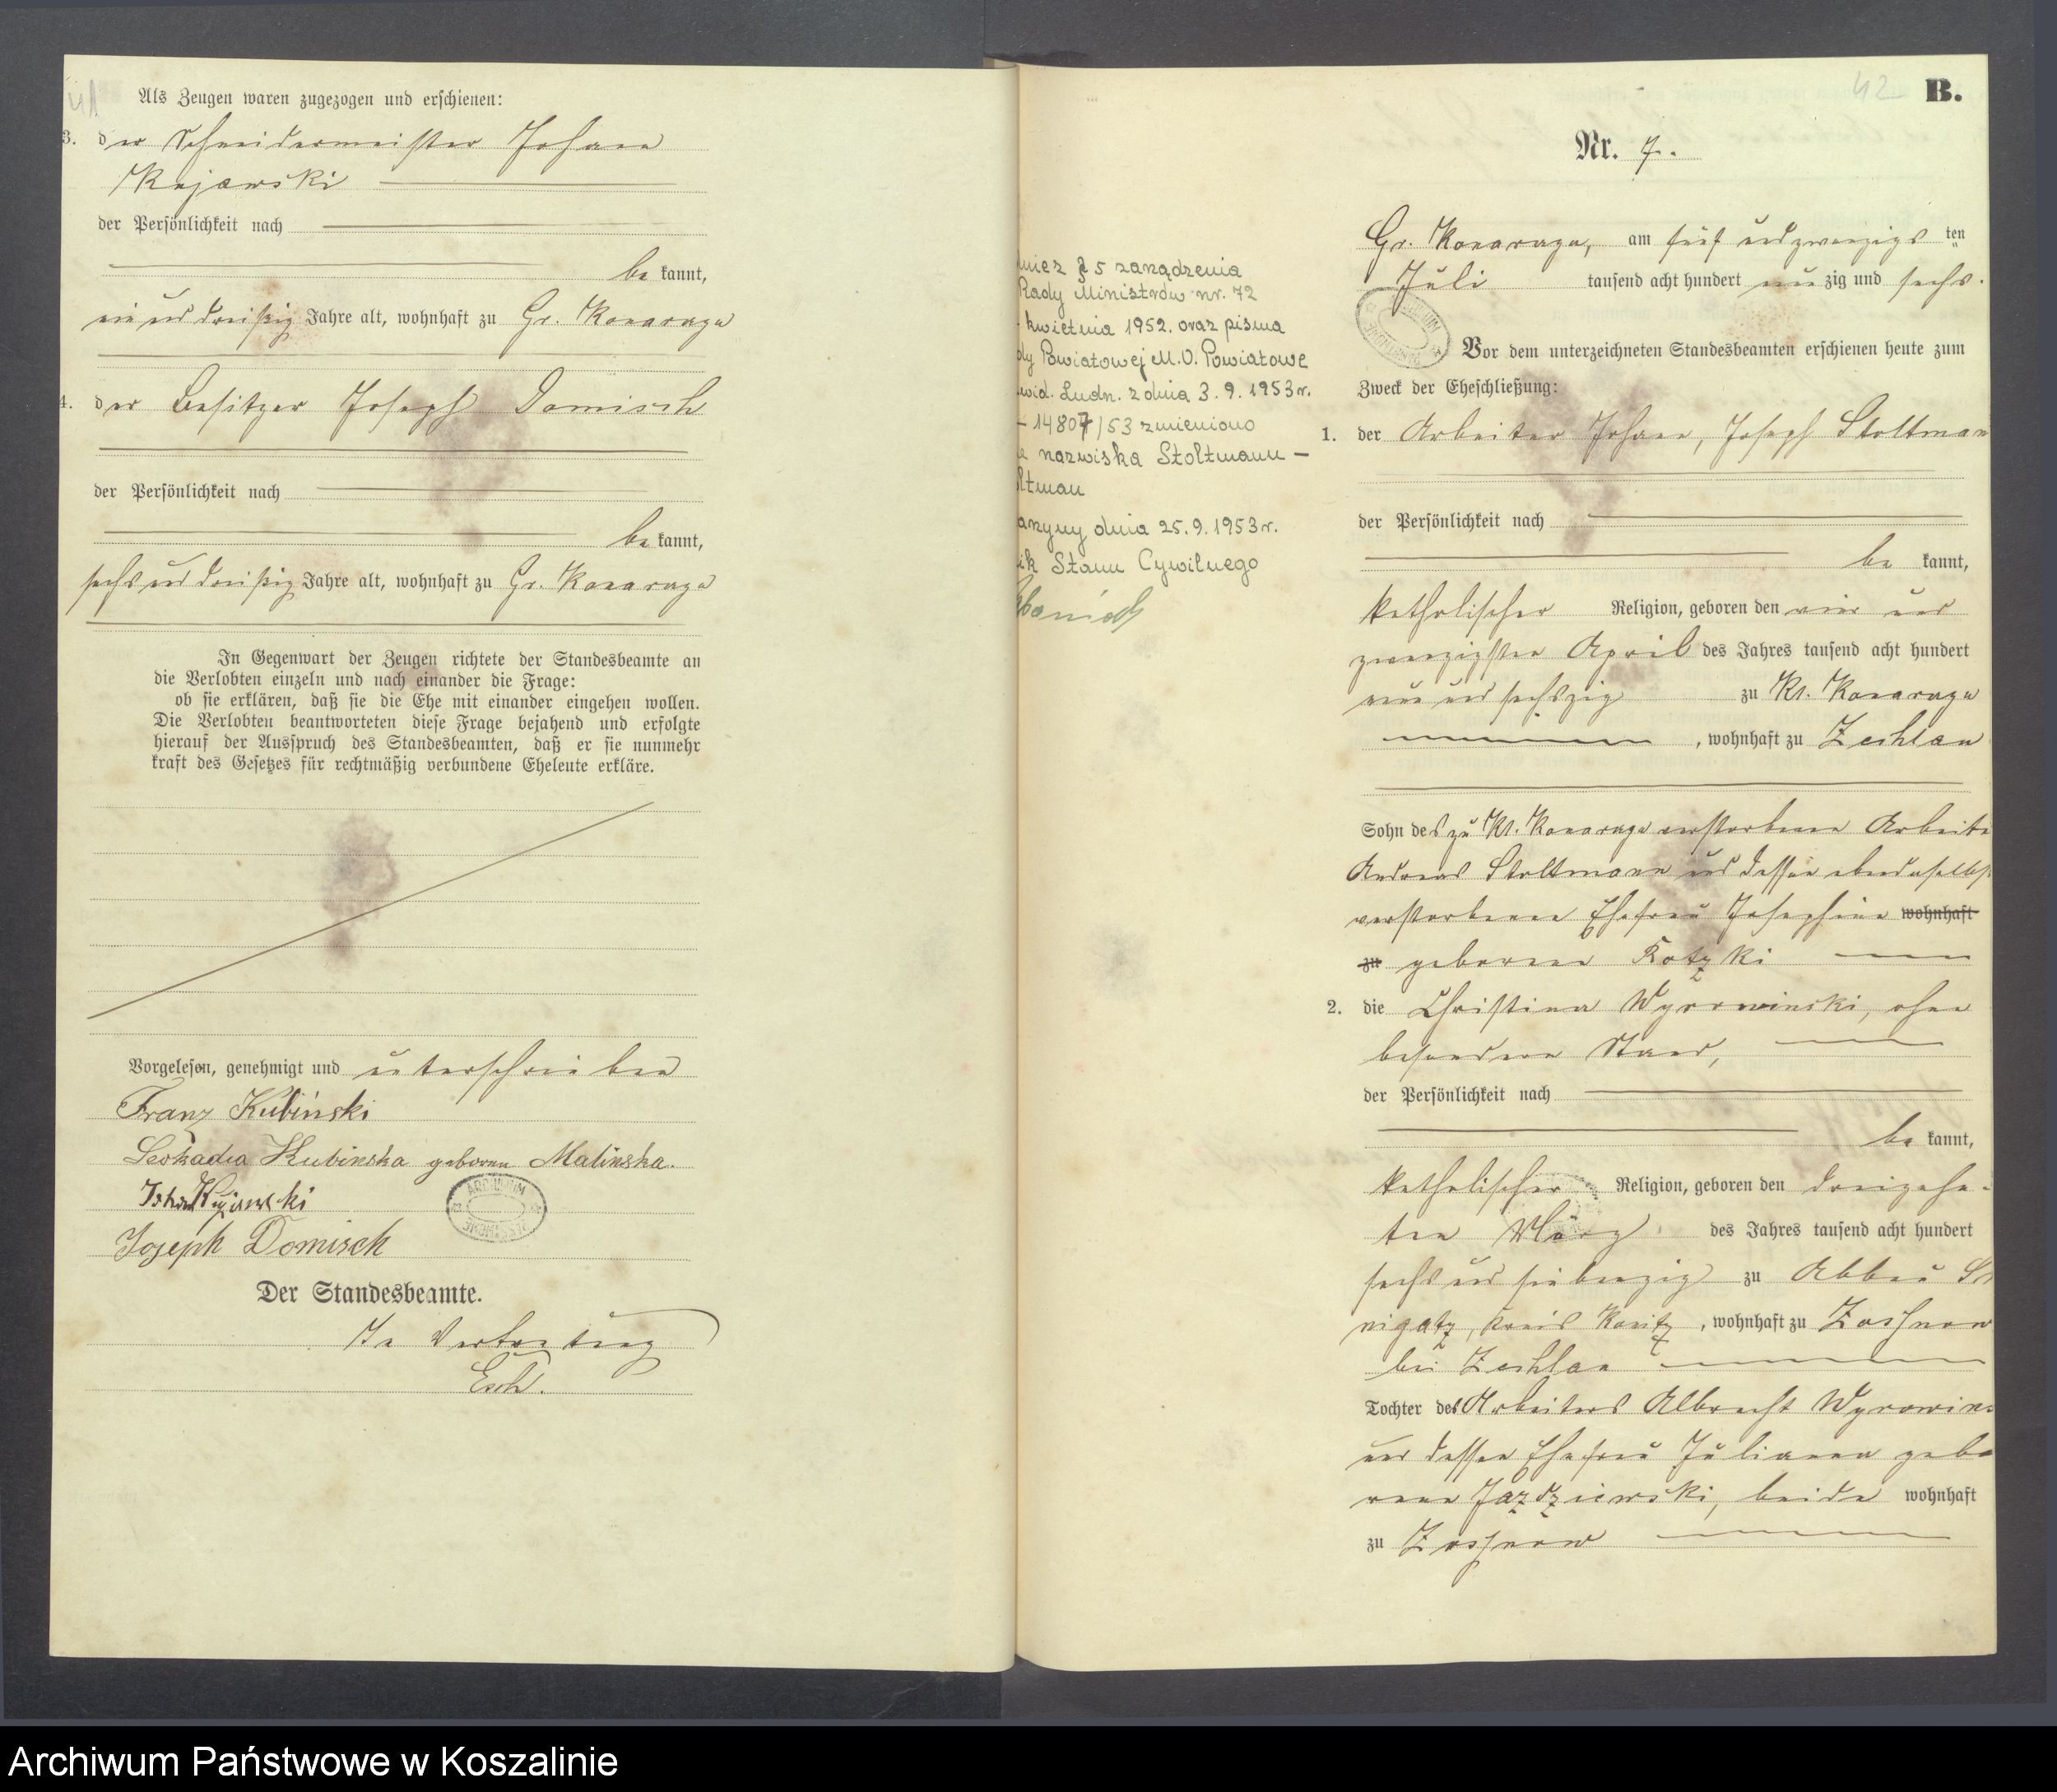 41
Als Zeugen waren zugezogen und erschienen:
3. der Schneidermeister Johann
Kujawski
der Persönlichkeit nach
be kannt,
ein und dreißig Jahre alt, wohnhaft zu Gr. Konarczyn
4. der Besitzer Joseph Domisch
der Persönlichkeit nach
be kannt,
sechs und dreißig Jahre alt, wohnhaft zu Gr. Konarczyn
In Gegenwart der Zeugen richtete der Standesbeamte an
die Verlobten einzeln und nach einander die Frage:
ob sie erklären, daß sie die Ehe mit einander eingehen wollen.
Die Verlobten beantworteten diese Frage bejahend und erfolgte
hierauf der Ausspruch des Standesbeamten, daß er sie nunmehr
kraft des Gesetzes für rechtmäßig verbundene Eheleute erkläre.
Vorgelesen, genehmigt und unterschrieben
Franz Kubiński
Leokadia Kubinska geborene Malinska.
Johann Kujawski
Joseph Domisch
ARCHIWUM
Der Standesbeamte.
In Vertretung
Esch.
42 B.
Nr. 7.
Gr. Konarczyn, am fünf und zwanzigs ten
Juli tausend acht hundert neun zig und sechs.
Vor dem unterzeichneten Standesbeamten erschienen heute zum
Zweck der Eheschließung:
1. der Arbeiter Johann, Joseph Stoltman
der Persönlichkeit nach
be kannt,
katholischer Religion, geboren den vier und
zwanzigsten April des Jahres tausend acht hundert
neun und sechszig zu Kl. Konarczyn
, wohnhaft zu Zechlau
Sohn des zu Kl. Konarczyn verstorbenen Arbeite
Andreas Stoltmann und dessen ebendaselbst
verstorbenen Ehefrau Josephine wohnhaft
zu geborenen Kotzki
2. die Christina Wyrowinski, ohne
besonderen Stand,
der Persönlichkeit nach
be kannt,
katholischer Religion, geboren den dreizehn-
ten März des Jahres tausend acht hundert
sechs und siebenzig zu Abbau
nigatz, Kreis Konitz, wohnhaft zu
bei Zechlau
Tochter des Arbeiters Albrecht Wyrowins
und dessen Ehefrau Julianna gebo
renen Jazdziewski, beide wohnhaft
zu
niez § 5 zarządzenia
Rady Ministrów nr. 72
kwietnia 1952. oraz pisma
dy Powiatowej M.O. Powiatowe
wid. Ludn. z dnia 3.9.1953 r.
- 14807/53 zmieniono
nazwiska Stoltmann -
ltman
arzyny dnia 25.9.1953 r.
ik Stanu Cywilnego
Archiwum Państwowe w Koszalinie